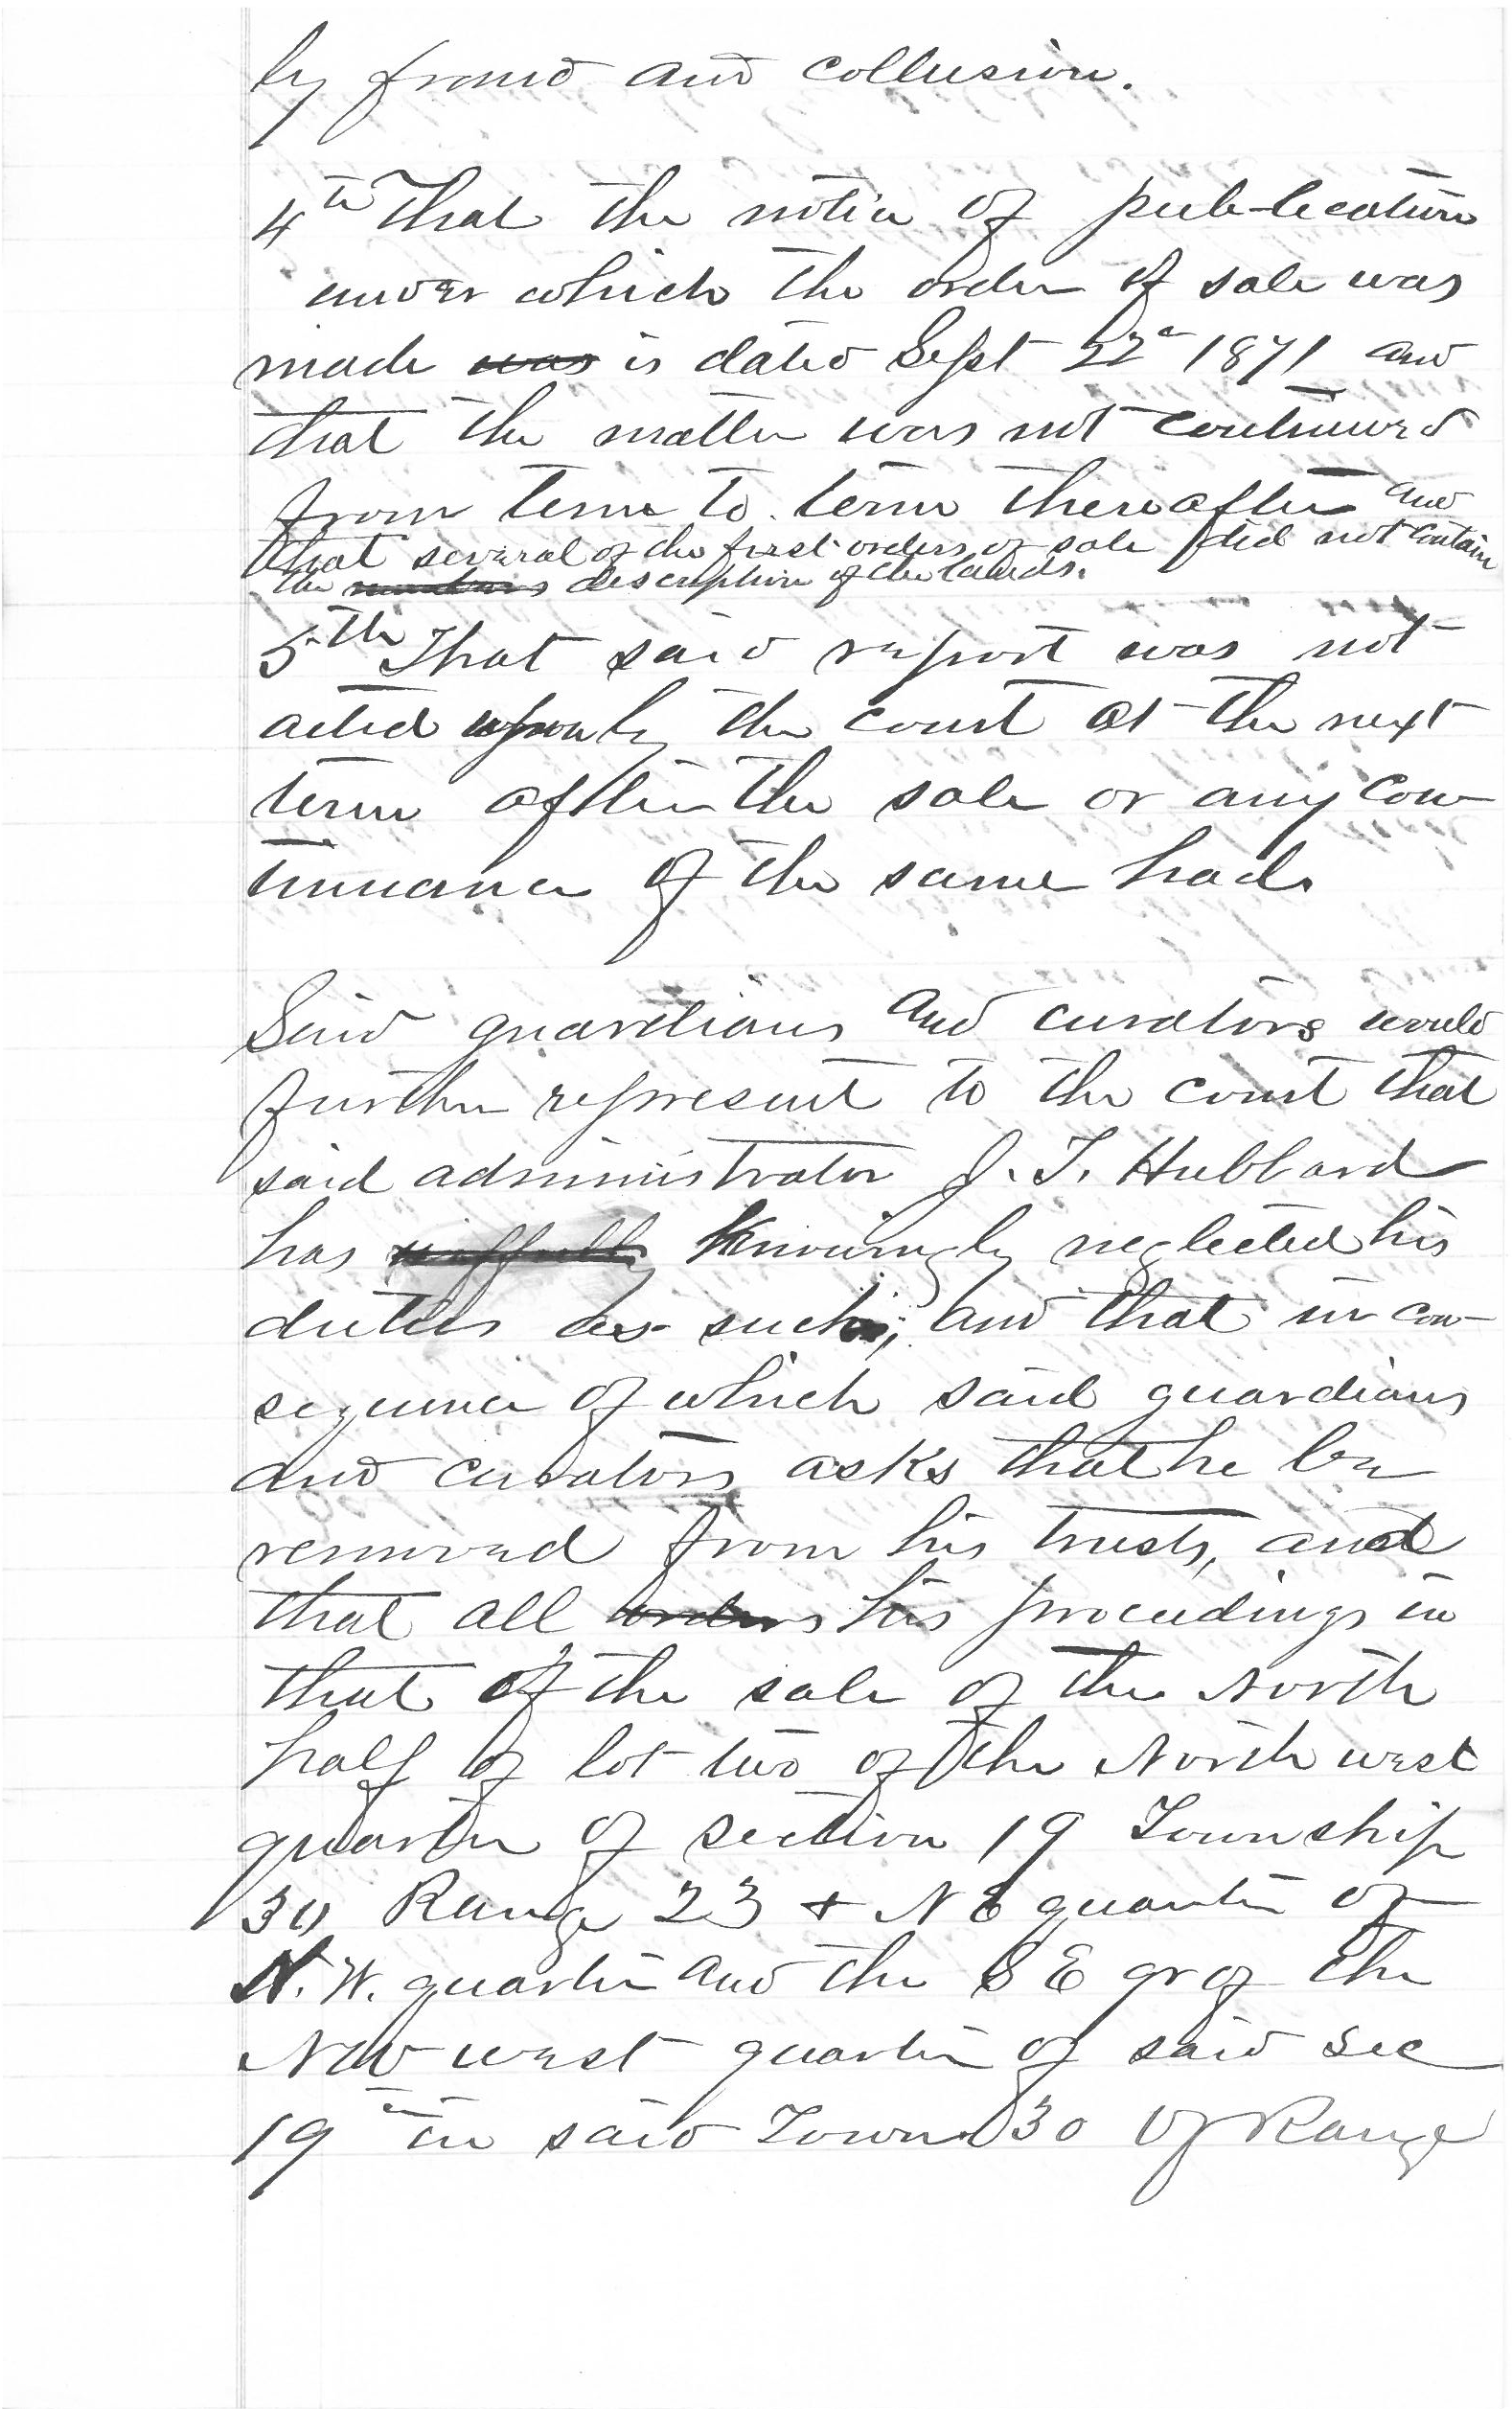 by fraud and collusion.
4th That the notice of publication
under which the order of sale was
made was is dated Sept 22d 1871 and
that the matter was not continued
from term to term thereafter and
that several of the first orders of sale did not contain
the numbers description of the lands.
5th That said report was not
acted upon by the court at the next
term after the sale or any con-
tinuance of the same had.
Said guardians and curators would
further represent to the court that
said administrator J. T. Hubbard
has willfully knowingly neglected his
duties as such; and that in con-
sequence of which said guardians
and curators asks that he be
removed from his trusts, and
that all orders his proceedings in
that of the sale of the North
half of lot two of the North west
quarter of section 19 Township
30 Range 23 + N E quarter of
N. W. quarter and the S E qr of the
North west quarter of said sec
19 in said Town 30 of Range